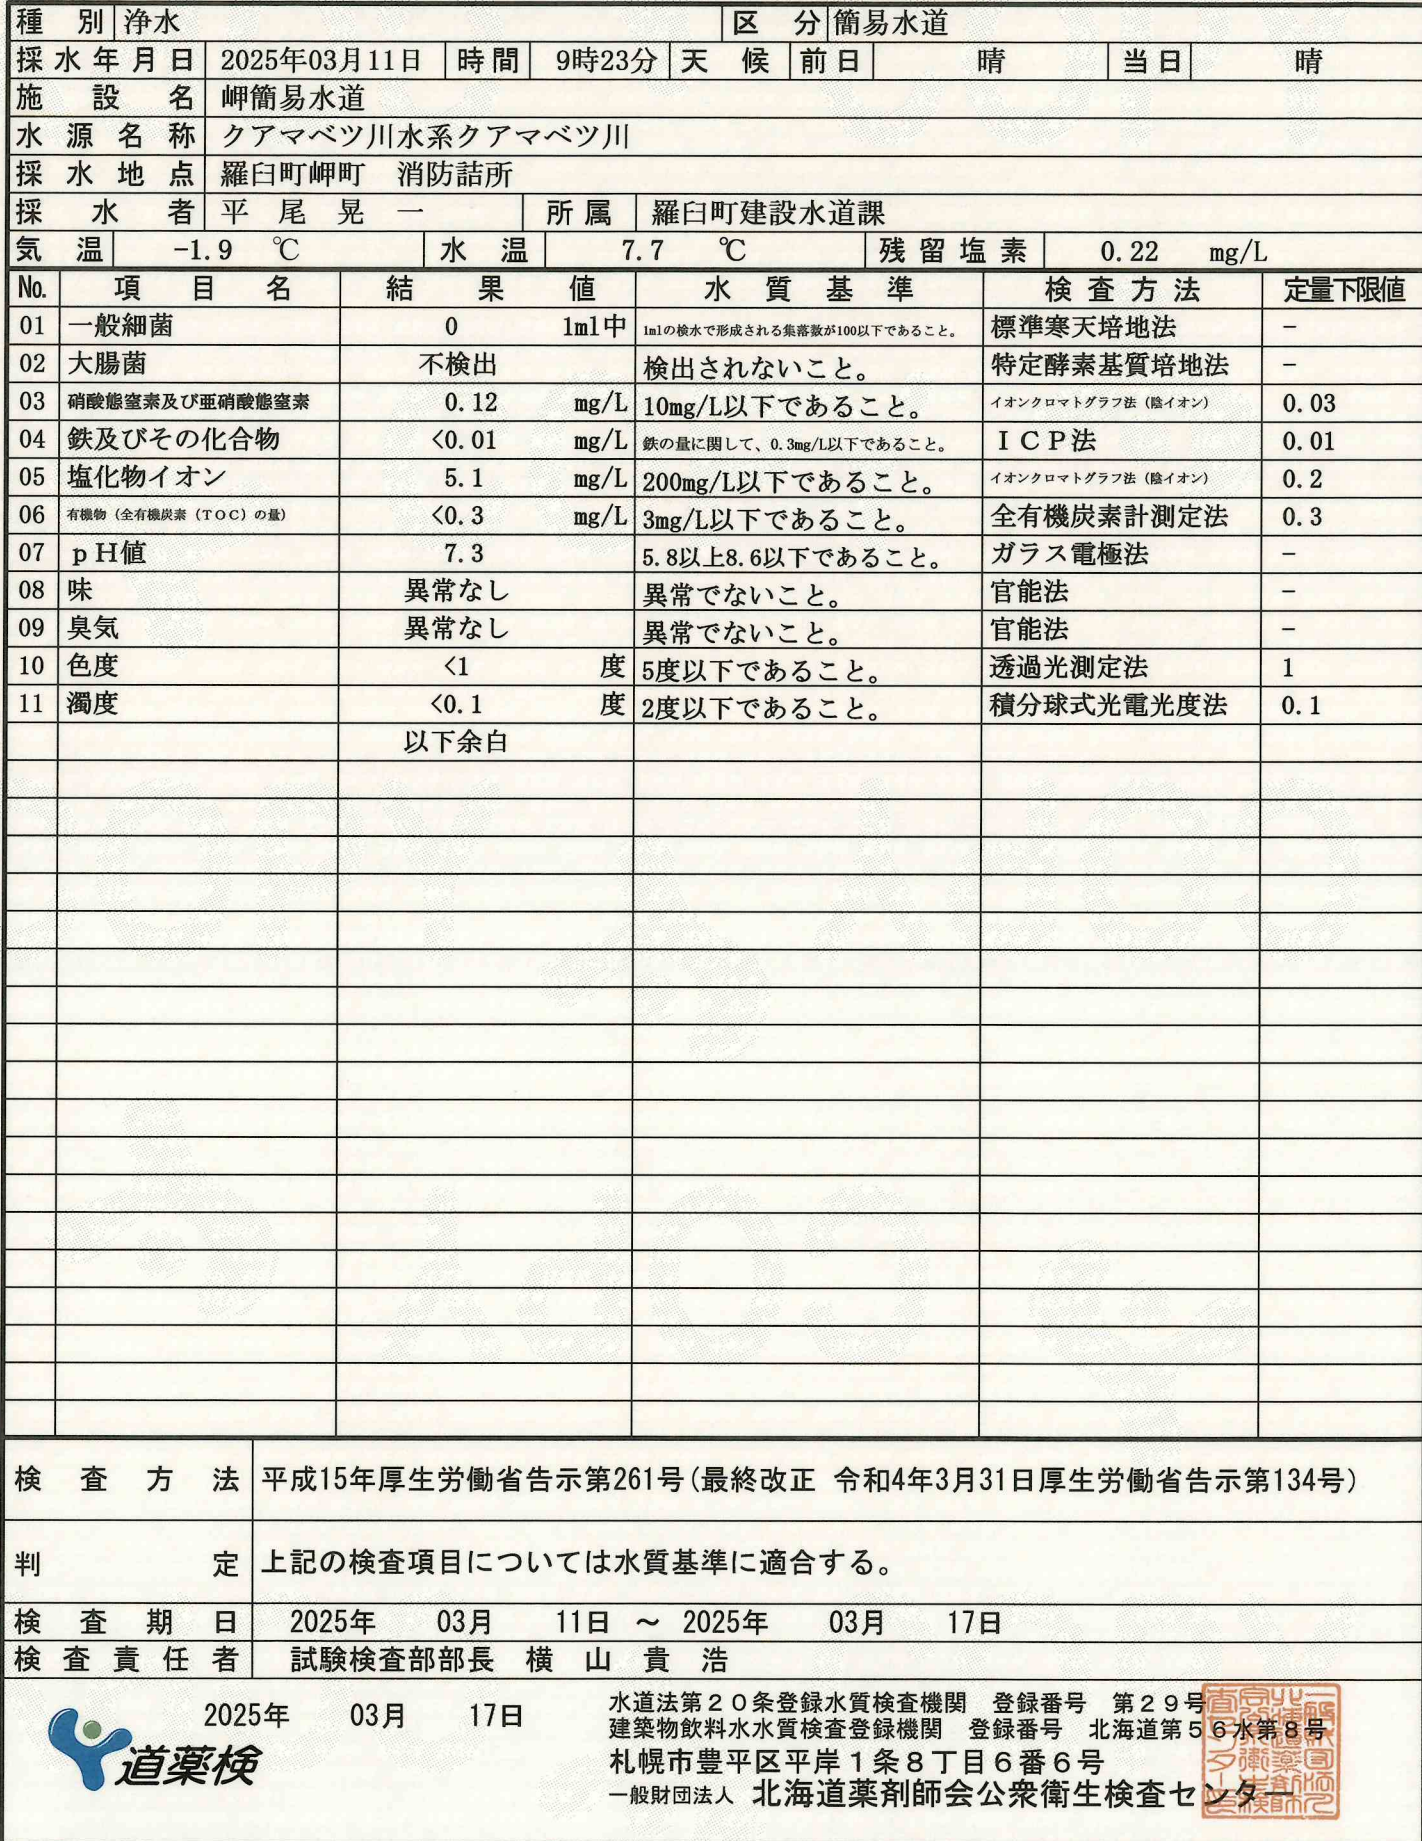 種別 浄水 区分 簡易水道
採水年月日 2025年03月11日 時間 9時23分 天候 前日 晴 当日 晴
施設名 岬簡易水道
水源名称 クアマベツ川水系クアマベツ川
採水地点 羅臼町岬町 消防詰所
採水者 平尾晃一 所属 羅臼町建設水道課
気温 -1.9 ℃ 水温 7.7 ℃ 残留塩素 0.22 mg/L
No. 項目名 結果値 水質基準 検査方法 定量下限値
01 一般細菌 0 1ml中 1mlの検水で形成される集落数が100以下であること。 標準寒天培地法 -
02 大腸菌 不検出 検出されないこと。 特定酵素基質培地法 -
03 硝酸態窒素及び亜硝酸態窒素 0.12 mg/L 10mg/L以下であること。 イオンクロマトグラフ法（陰イオン） 0.03
04 鉄及びその化合物 <0.01 mg/L 鉄の量に関して、0.3mg/L以下であること。 ＩＣＰ法 0.01
05 塩化物イオン 5.1 mg/L 200mg/L以下であること。 イオンクロマトグラフ法（陰イオン） 0.2
06 有機物（全有機炭素（ＴＯＣ）の量） <0.3 mg/L 3mg/L以下であること。 全有機炭素計測定法 0.3
07 ｐＨ値 7.3 5.8以上8.6以下であること。 ガラス電極法 -
08 味 異常なし 異常でないこと。 官能法 -
09 臭気 異常なし 異常でないこと。 官能法 -
10 色度 <1 度 5度以下であること。 透過光測定法 1
11 濁度 <0.1 度 2度以下であること。 積分球式光電光度法 0.1
以下余白
検査方法 平成15年厚生労働省告示第261号(最終改正 令和4年3月31日厚生労働省告示第134号)
判定 上記の検査項目については水質基準に適合する。
検査期日 2025年 03月 11日 ～ 2025年 03月 17日
検査責任者 試験検査部部長 横山貴浩
2025年 03月 17日
道薬検
水道法第２０条登録水質検査機関 登録番号 第２９号
建築物飲料水水質検査登録機関 登録番号 北海道第５６水第８号
札幌市豊平区平岸１条８丁目６番６号
一般財団法人 北海道薬剤師会公衆衛生検査センター